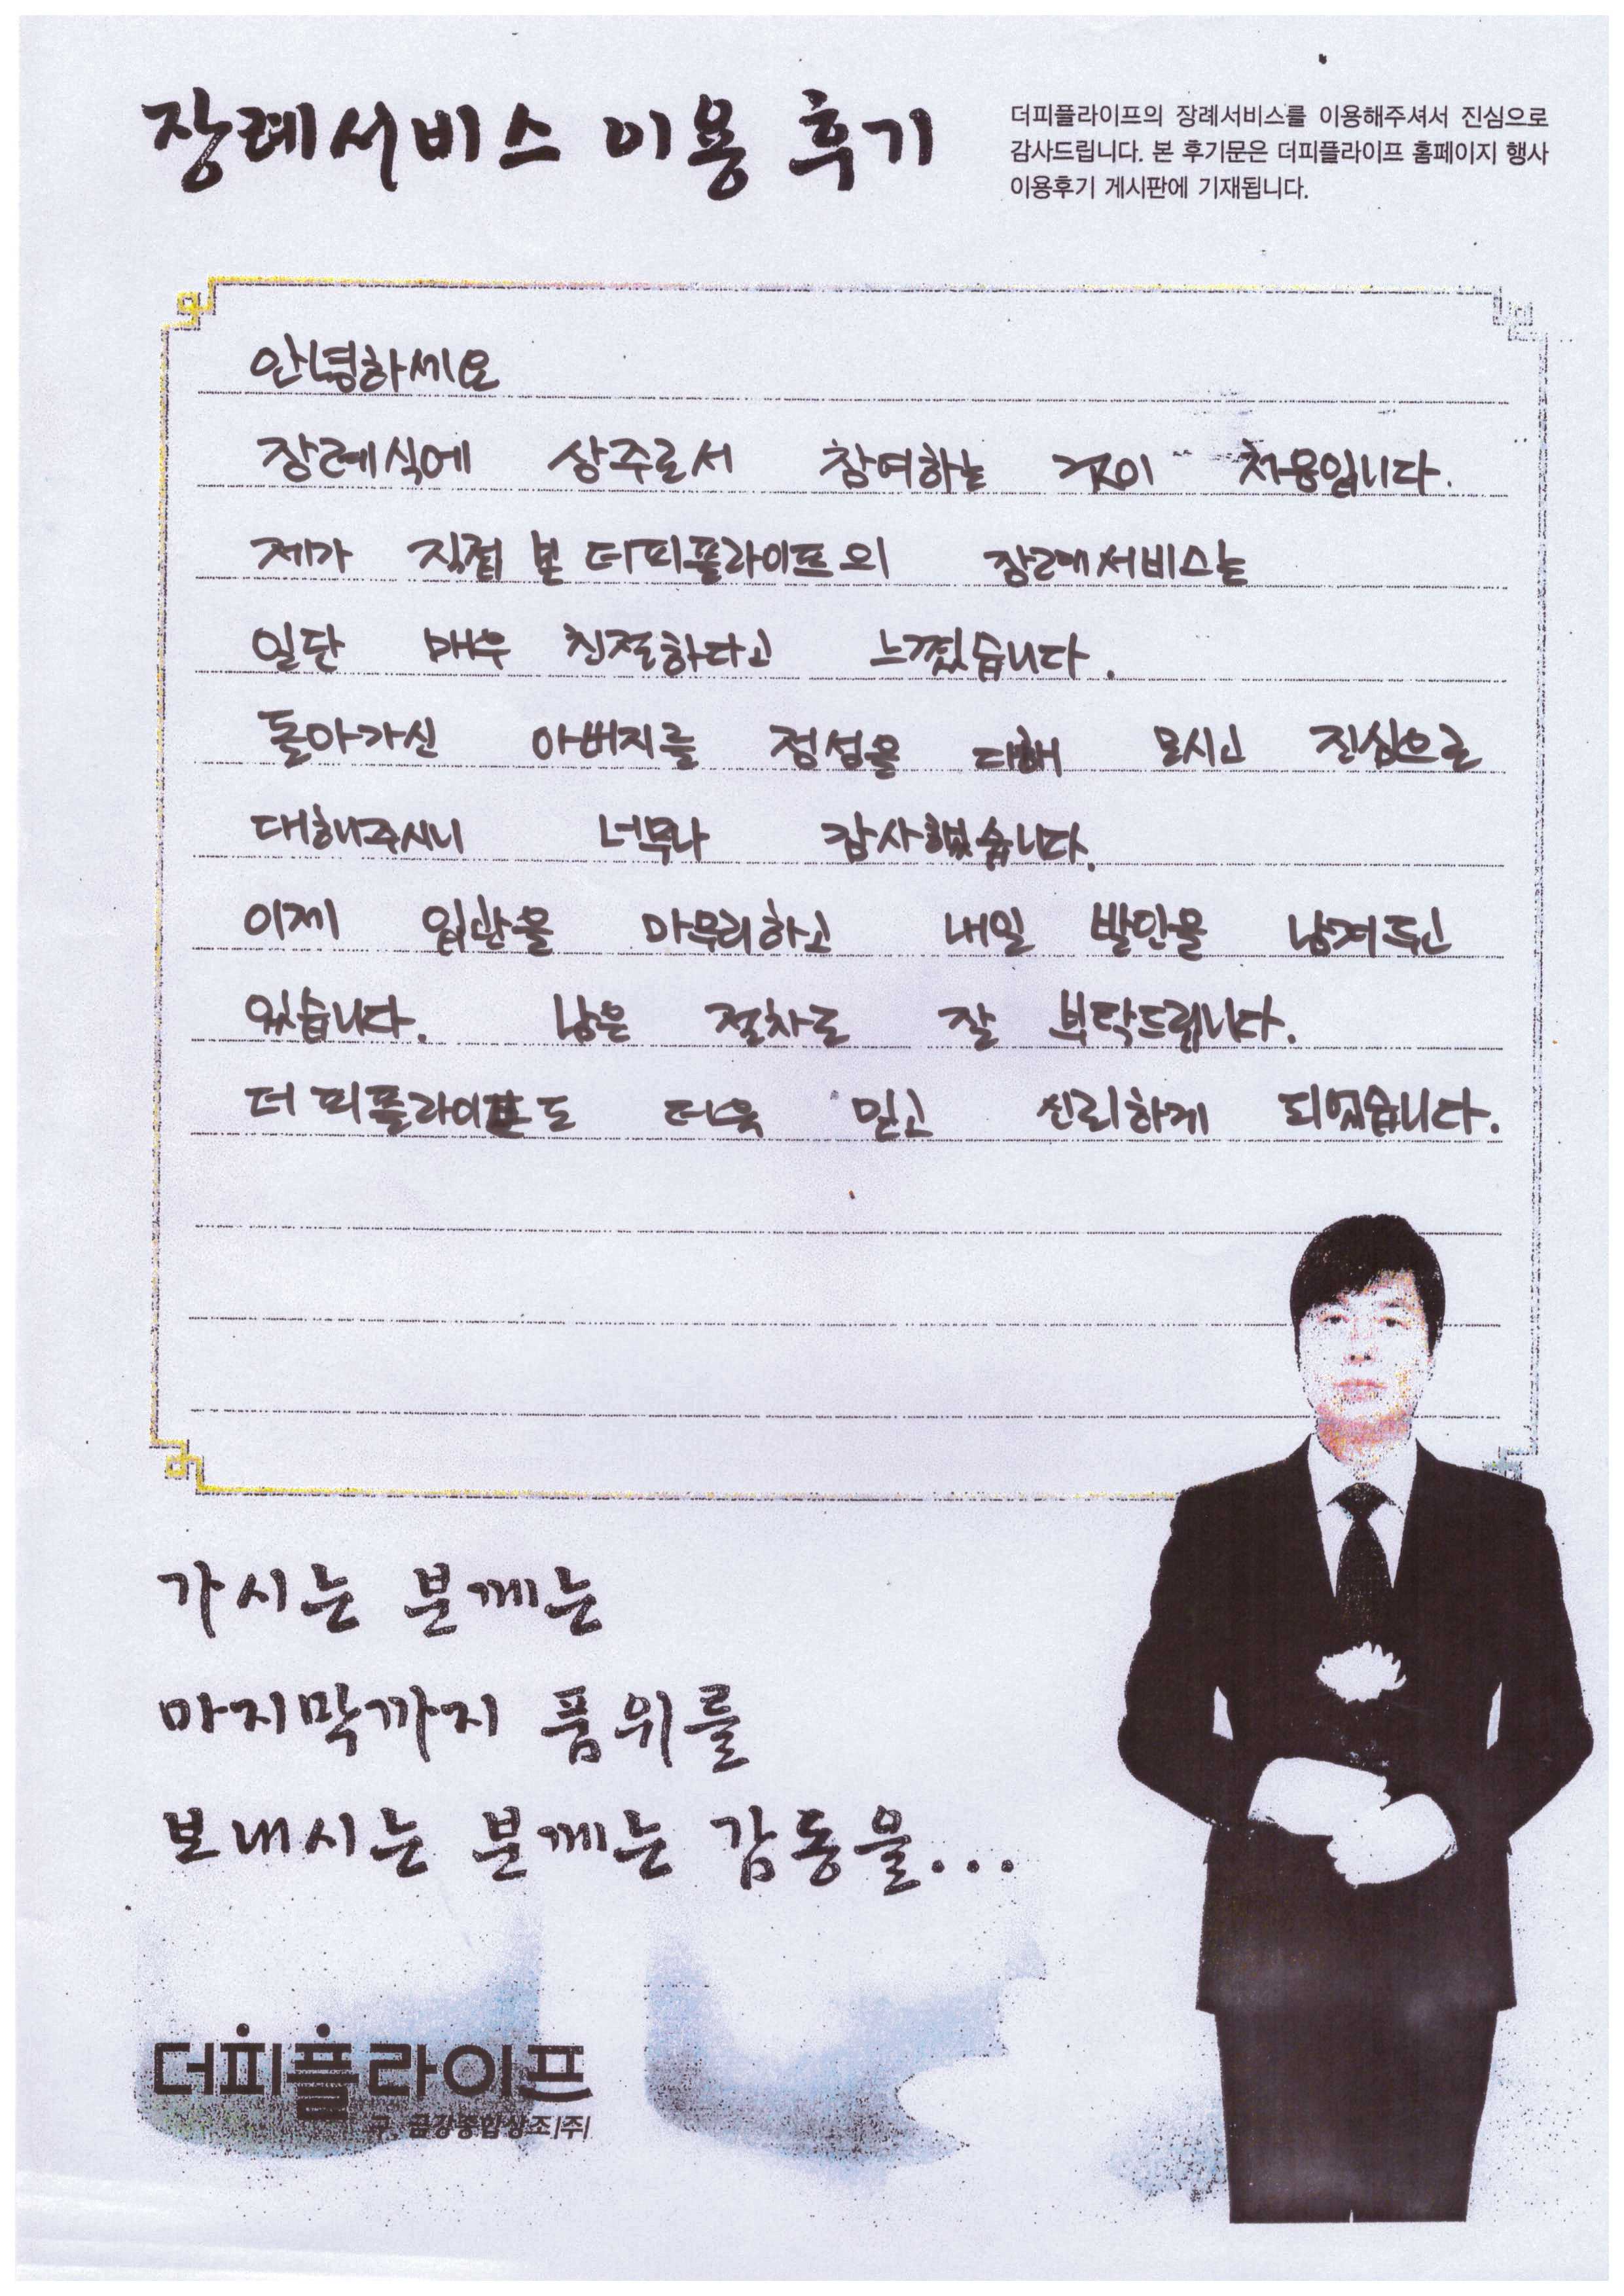 장례서비스 이용 후기
더피플라이프의 장례서비스를 이용해주셔서 진심으로
감사드립니다. 본 후기문은 더피플라이프 홈페이지 행사
이용후기 게시판에 기재됩니다.
안녕하세요
장례식에 상주로서 참여하는 것이 처음입니다.
제가 직접 본 더피플라이프의 장례서비스는
일단 매우 친절하다고 느꼈습니다.
돌아가신 아버지를 정성을 다해 모시고 진심으로
대해주시니 너무나 감사했습니다.
이제 입관을 마무리하고 내일 발인을 남겨두고
있습니다. 남은 절차도 잘 부탁드립니다.
더피플라이프도 더욱 믿고 신뢰하게 되었습니다.
가시는 분께는
마지막까지 품위를
보내시는 분께는 감동을...
더피플라이프
구. 금강종합상조(주)